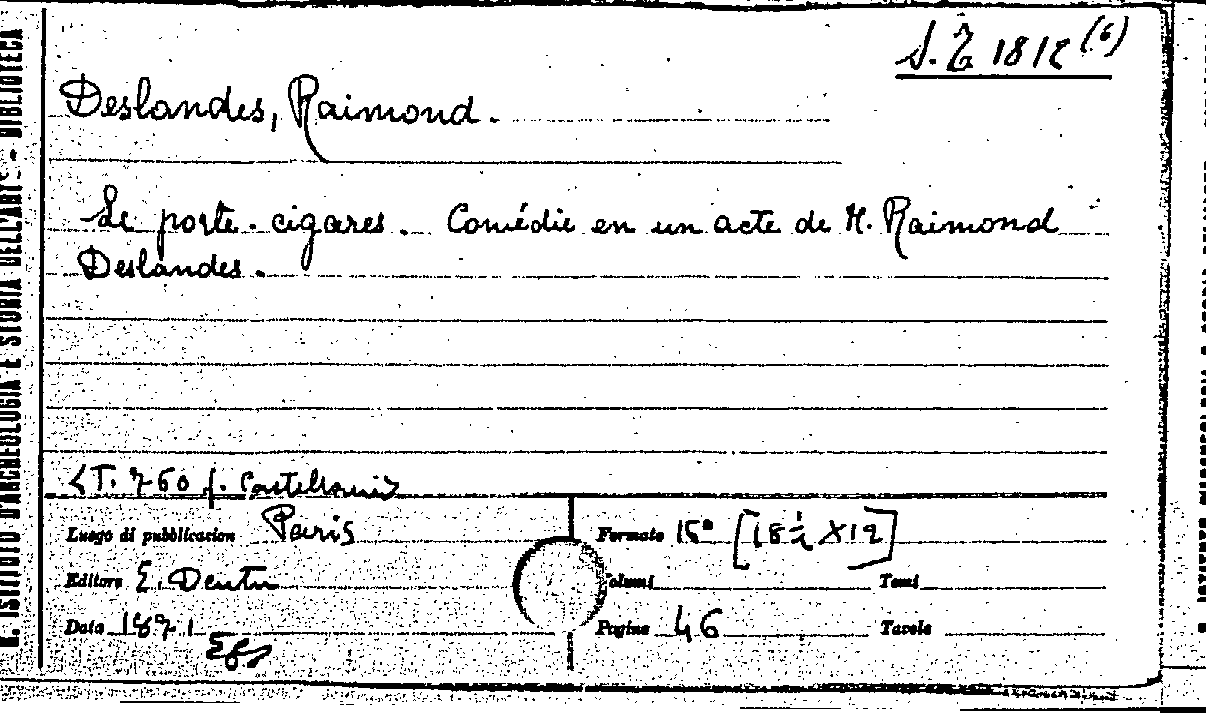 R. ISTITUTO D'ARCHEOLOGIA E STORIA DELL'ARTE - BIBLIOTECA
Deslandes, Raimond.
Le porte-cigares. Comédie en un acte de M. Raimond
Deslandes.
Luogo di pubblicazione Paris
Editore E. Dentu
Data 1871
Formato 16° [18½ X12]
Volumi
Tomi
Pagine 46
Tavole